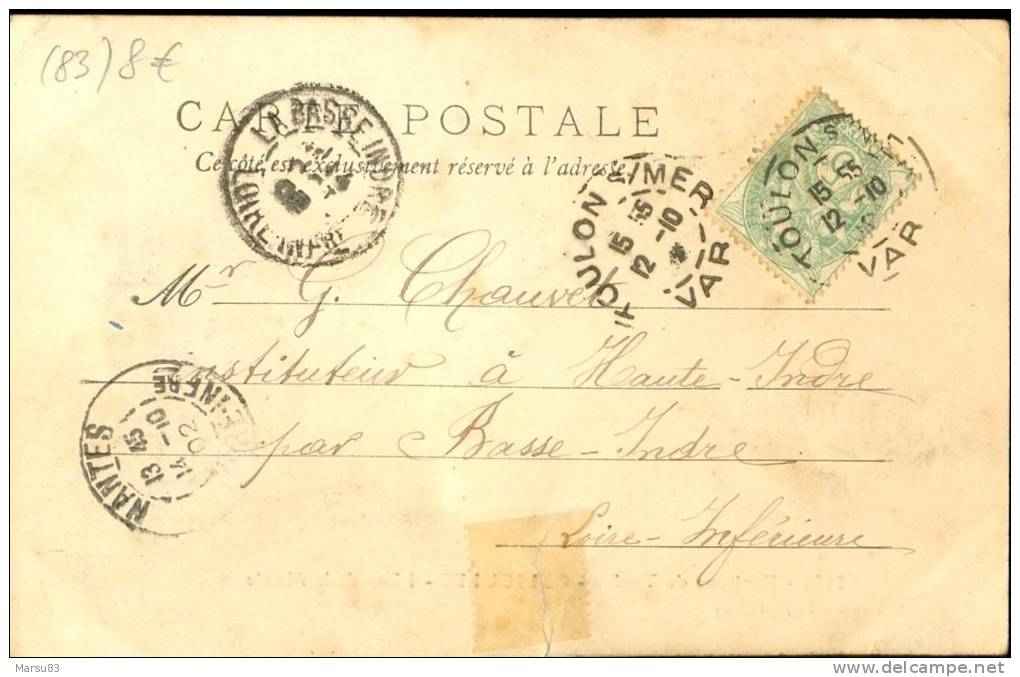 (83) 8€
CARTE POSTALE
Ce côté est exclusivement réservé à l'adresse.
LA BASSE INDRE
LOIRE-INFRE
TOULON S/MER
15 55
12 -10
VAR
TOULON S/MER
15 55
12 -10
VAR
Mr G. Chauvet
instituteur à Haute-Indre
par Basse-Indre
Loire-Inférieure
NANTES
13 45
14 -10
02
INFRE
Marsu83
delcampe.net